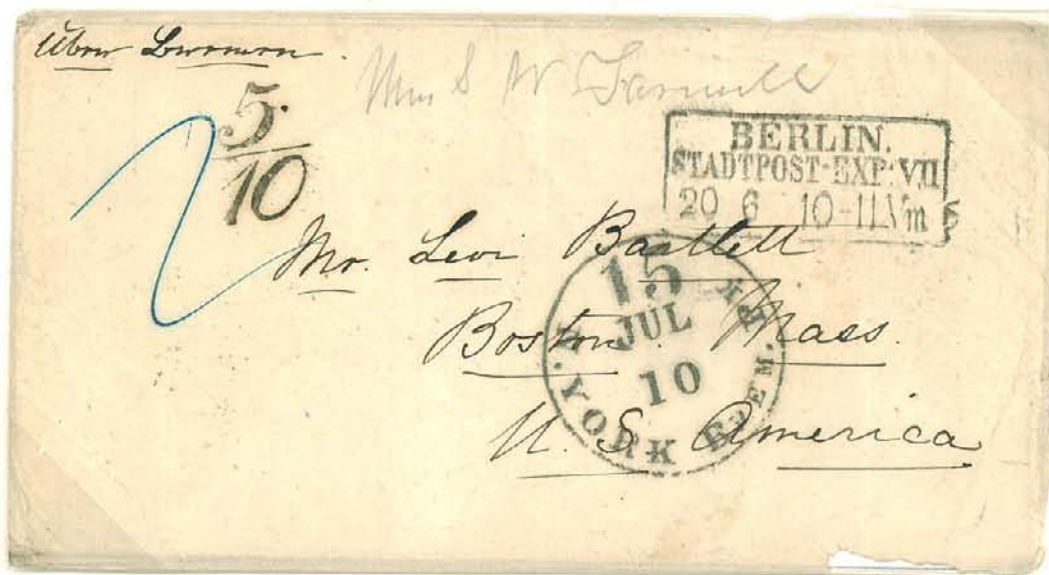 Über Bremen.
Mrs S W Farwell
5/10
2
BERLIN.
STADTPOST-EXP: VII
20 6 10-11 Vm
Mr. Levi Bartlett
Boston. Mass.
U. S. America
15
JUL
10
N. YORK BREM. PKT